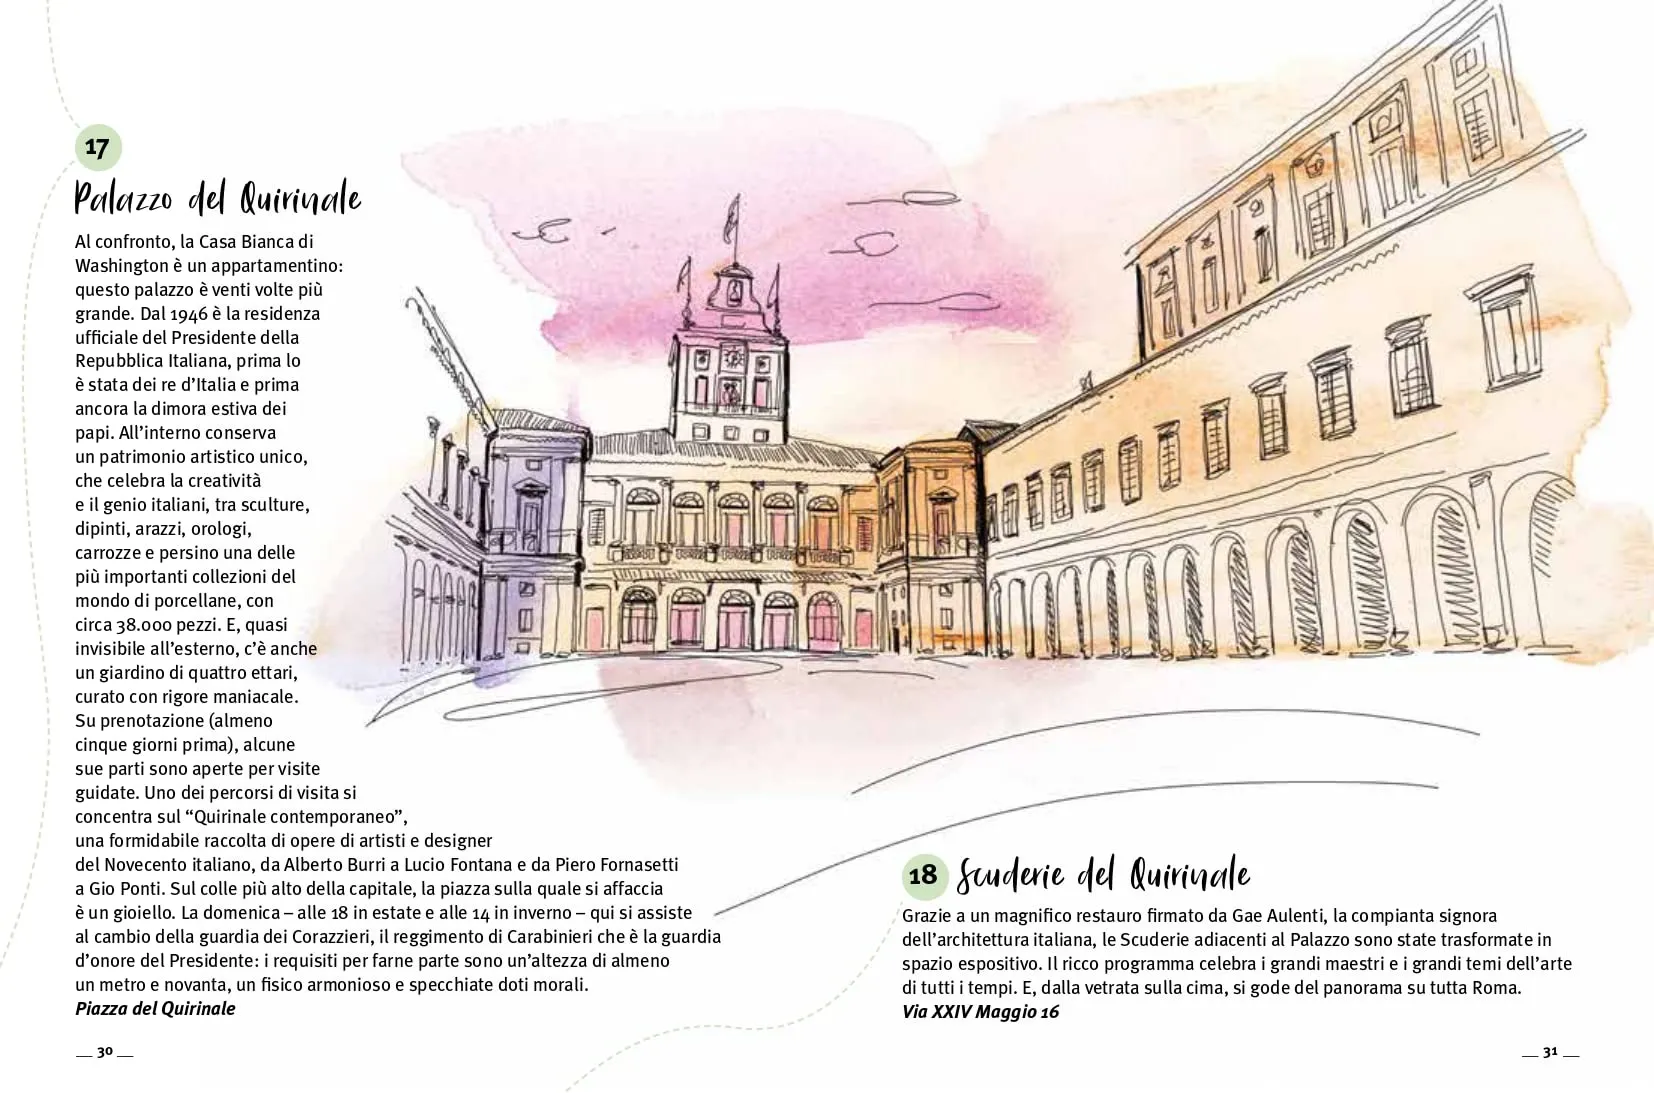 17
Palazzo del Quirinale
Al confronto, la Casa Bianca di
Washington è un appartamentino:
questo palazzo è venti volte più
grande. Dal 1946 è la residenza
ufficiale del Presidente della
Repubblica Italiana, prima lo
è stata dei re d’Italia e prima
ancora la dimora estiva dei
papi. All’interno conserva
un patrimonio artistico unico,
che celebra la creatività
e il genio italiani, tra sculture,
dipinti, arazzi, orologi,
carrozze e persino una delle
più importanti collezioni del
mondo di porcellane, con
circa 38.000 pezzi. E, quasi
invisibile all’esterno, c’è anche
un giardino di quattro ettari,
curato con rigore maniacale.
Su prenotazione (almeno
cinque giorni prima), alcune
sue parti sono aperte per visite
guidate. Uno dei percorsi di visita si
concentra sul “Quirinale contemporaneo”,
una formidabile raccolta di opere di artisti e designer
del Novecento italiano, da Alberto Burri a Lucio Fontana e da Piero Fornasetti
a Gio Ponti. Sul colle più alto della capitale, la piazza sulla quale si affaccia
è un gioiello. La domenica – alle 18 in estate e alle 14 in inverno – qui si assiste
al cambio della guardia dei Corazzieri, il reggimento di Carabinieri che è la guardia
d’onore del Presidente: i requisiti per farne parte sono un’altezza di almeno
un metro e novanta, un fisico armonioso e specchiate doti morali.
Piazza del Quirinale
__ 30 __
18 Scuderie del Quirinale
Grazie a un magnifico restauro firmato da Gae Aulenti, la compianta signora
dell’architettura italiana, le Scuderie adiacenti al Palazzo sono state trasformate in
spazio espositivo. Il ricco programma celebra i grandi maestri e i grandi temi dell’arte
di tutti i tempi. E, dalla vetrata sulla cima, si gode del panorama su tutta Roma.
Via XXIV Maggio 16
__ 31 __